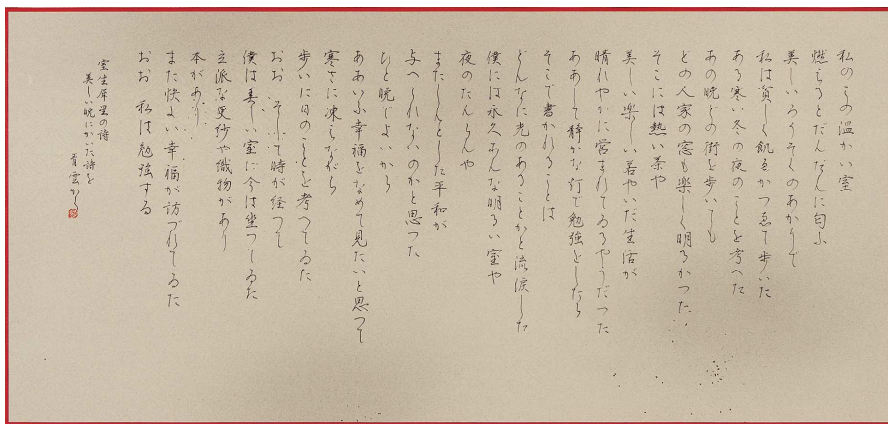 私のこの温かい室
燃えるとだんだんに匂ふ
美しいろうそくのあかりで
私は貧しく飢ゑかつゑて歩いた
ある寒い冬の夜のことを考へた
あの晩どの街を歩いても
どの人家の窓も楽しく明るかつた
そこには熱い茶や
美しい楽しい若やいだ生活が
晴れやかに営まれてゐるやうだつた
ああして静かな灯で勉強をしたら
そこで書かれることは
どんなに光のあることかと流涙した
僕には永久あんな明るい室や
夜のだんらんや
またしんとした平和が
与へられないのかと思つた
ひと晩でよいから
ああいふ幸福をなめて見たいと思つて
寒さに凍えながら
歩いた日のことを考へてゐた
おお そして時が経つて
僕は美しい室に今は坐つてゐた
立派な更紗や織物があり
本があり
また快よい幸福が訪づれてゐた
おお 私は勉強する
室生犀星の詩
美しい晩にかいた詩を
青雲かく